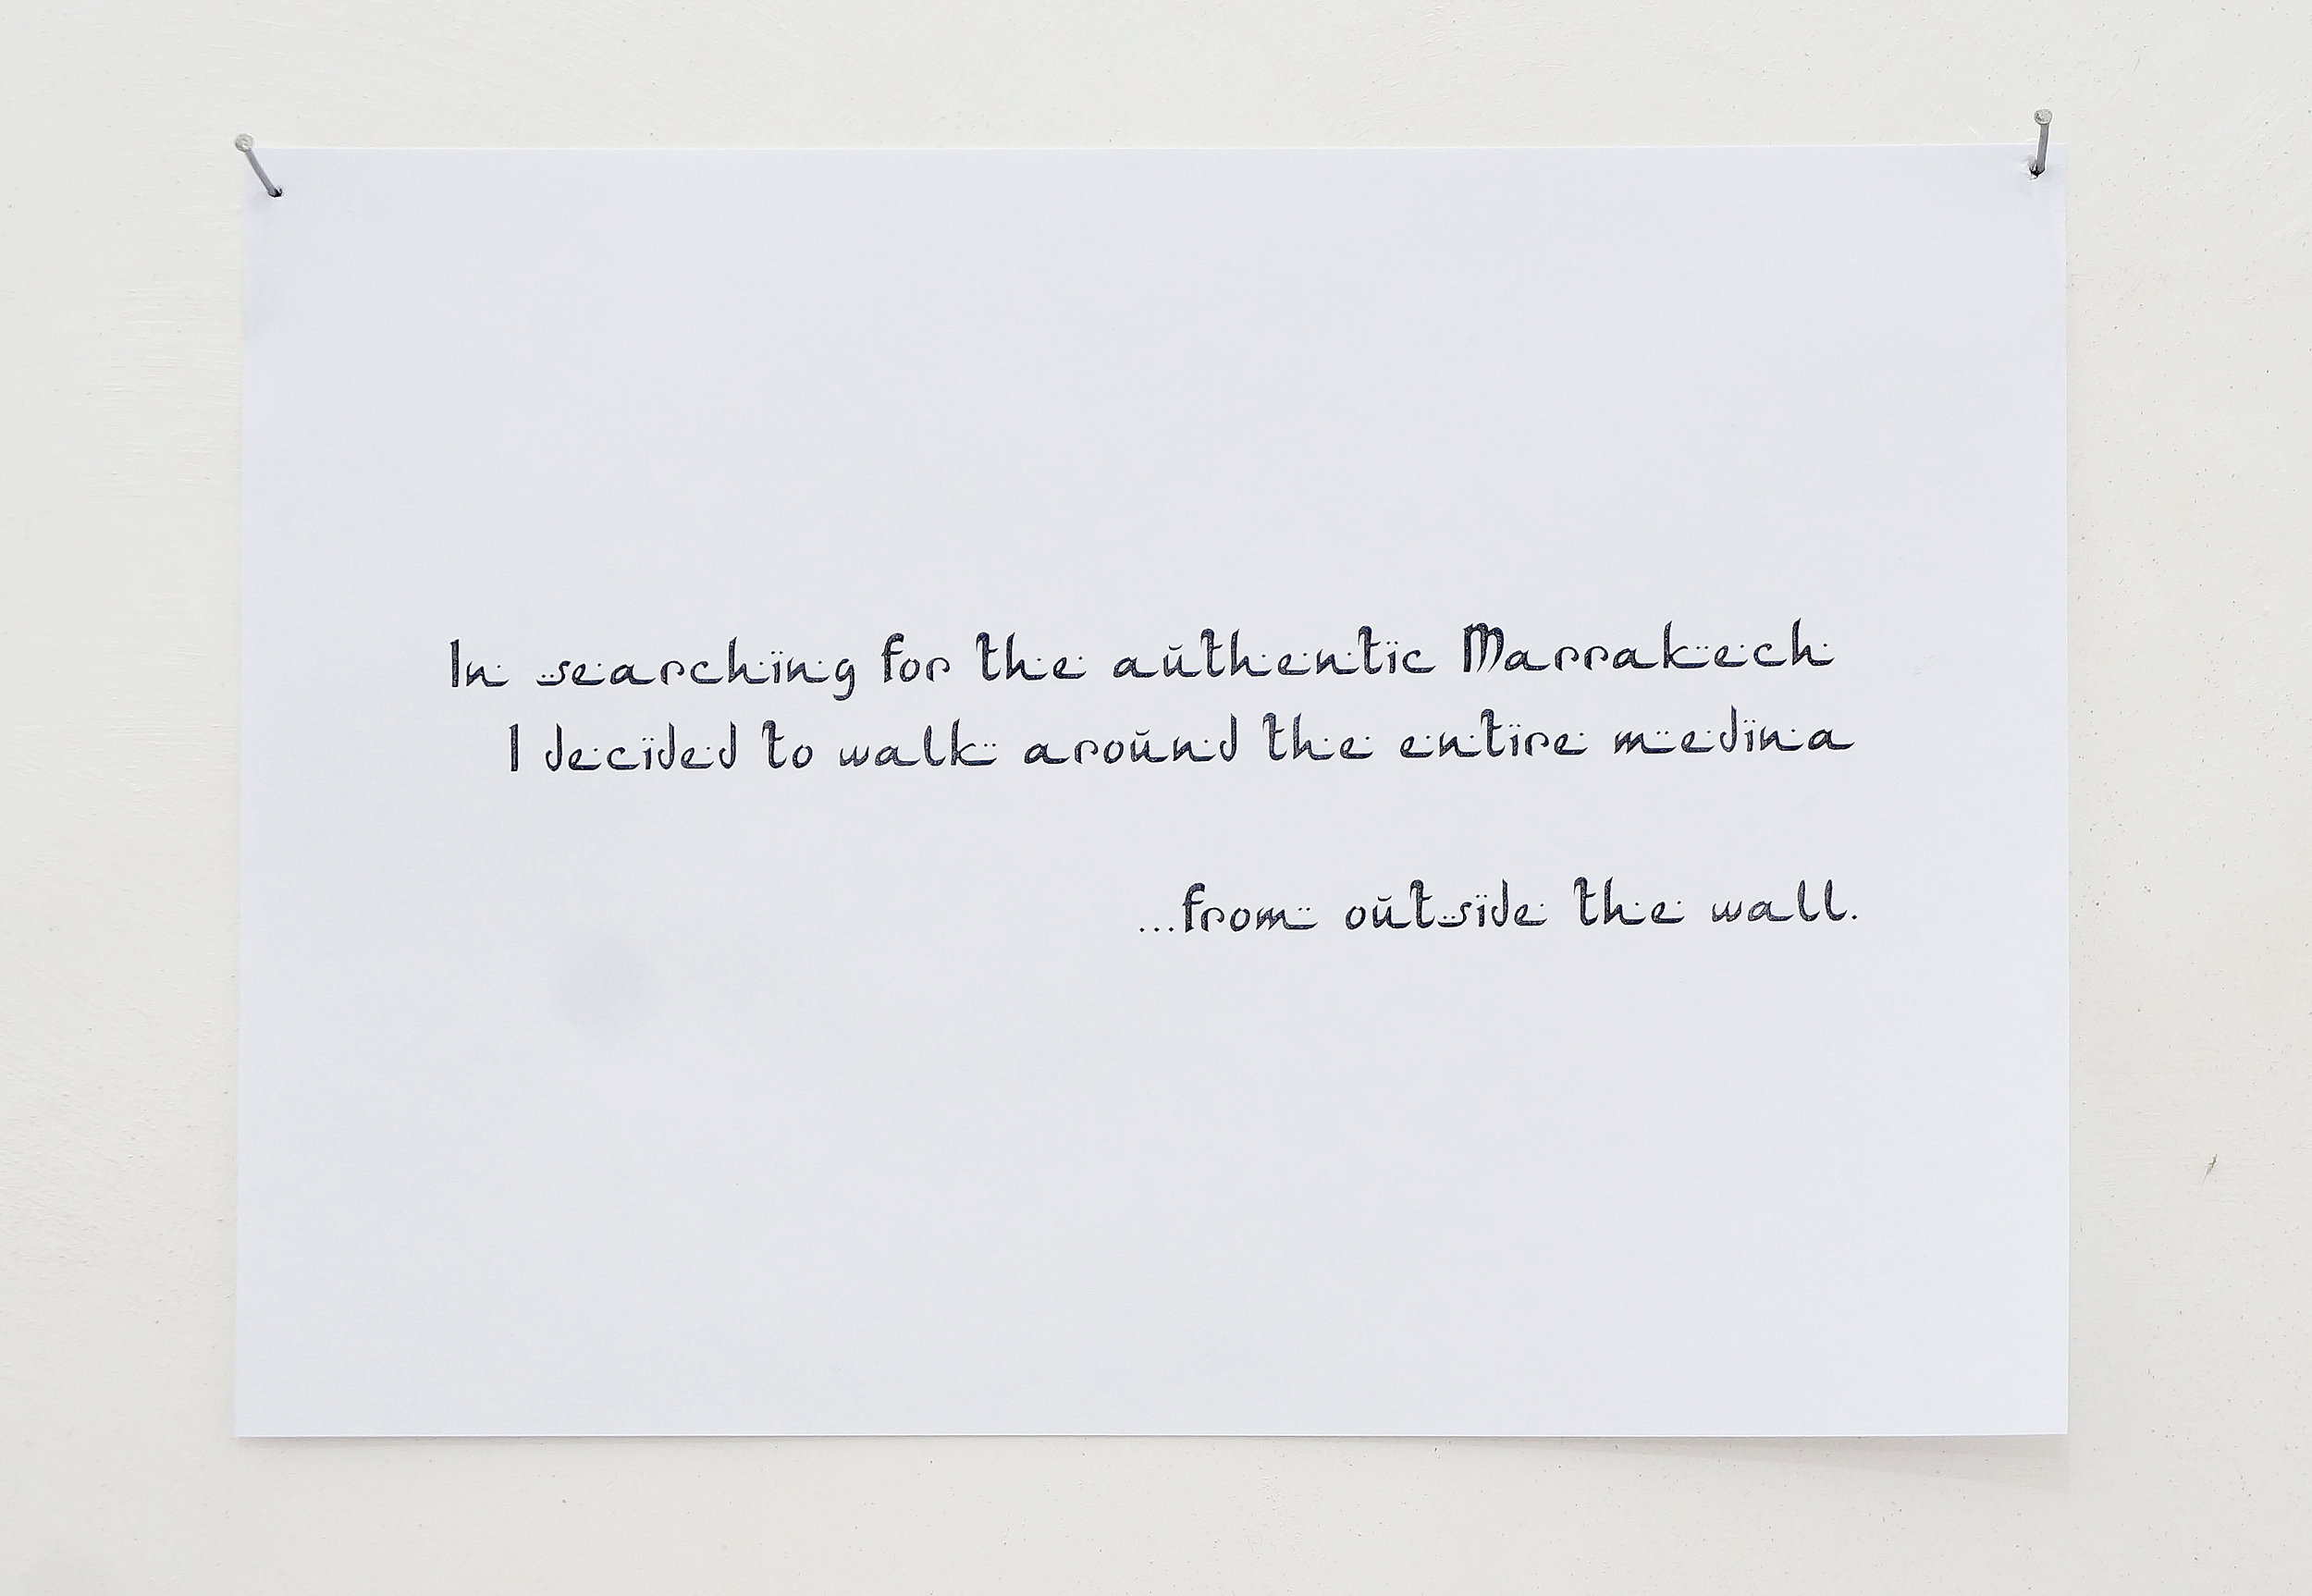 In searching for the authentic Marrakech
I decided to walk around the entire medina
...from outside the wall.